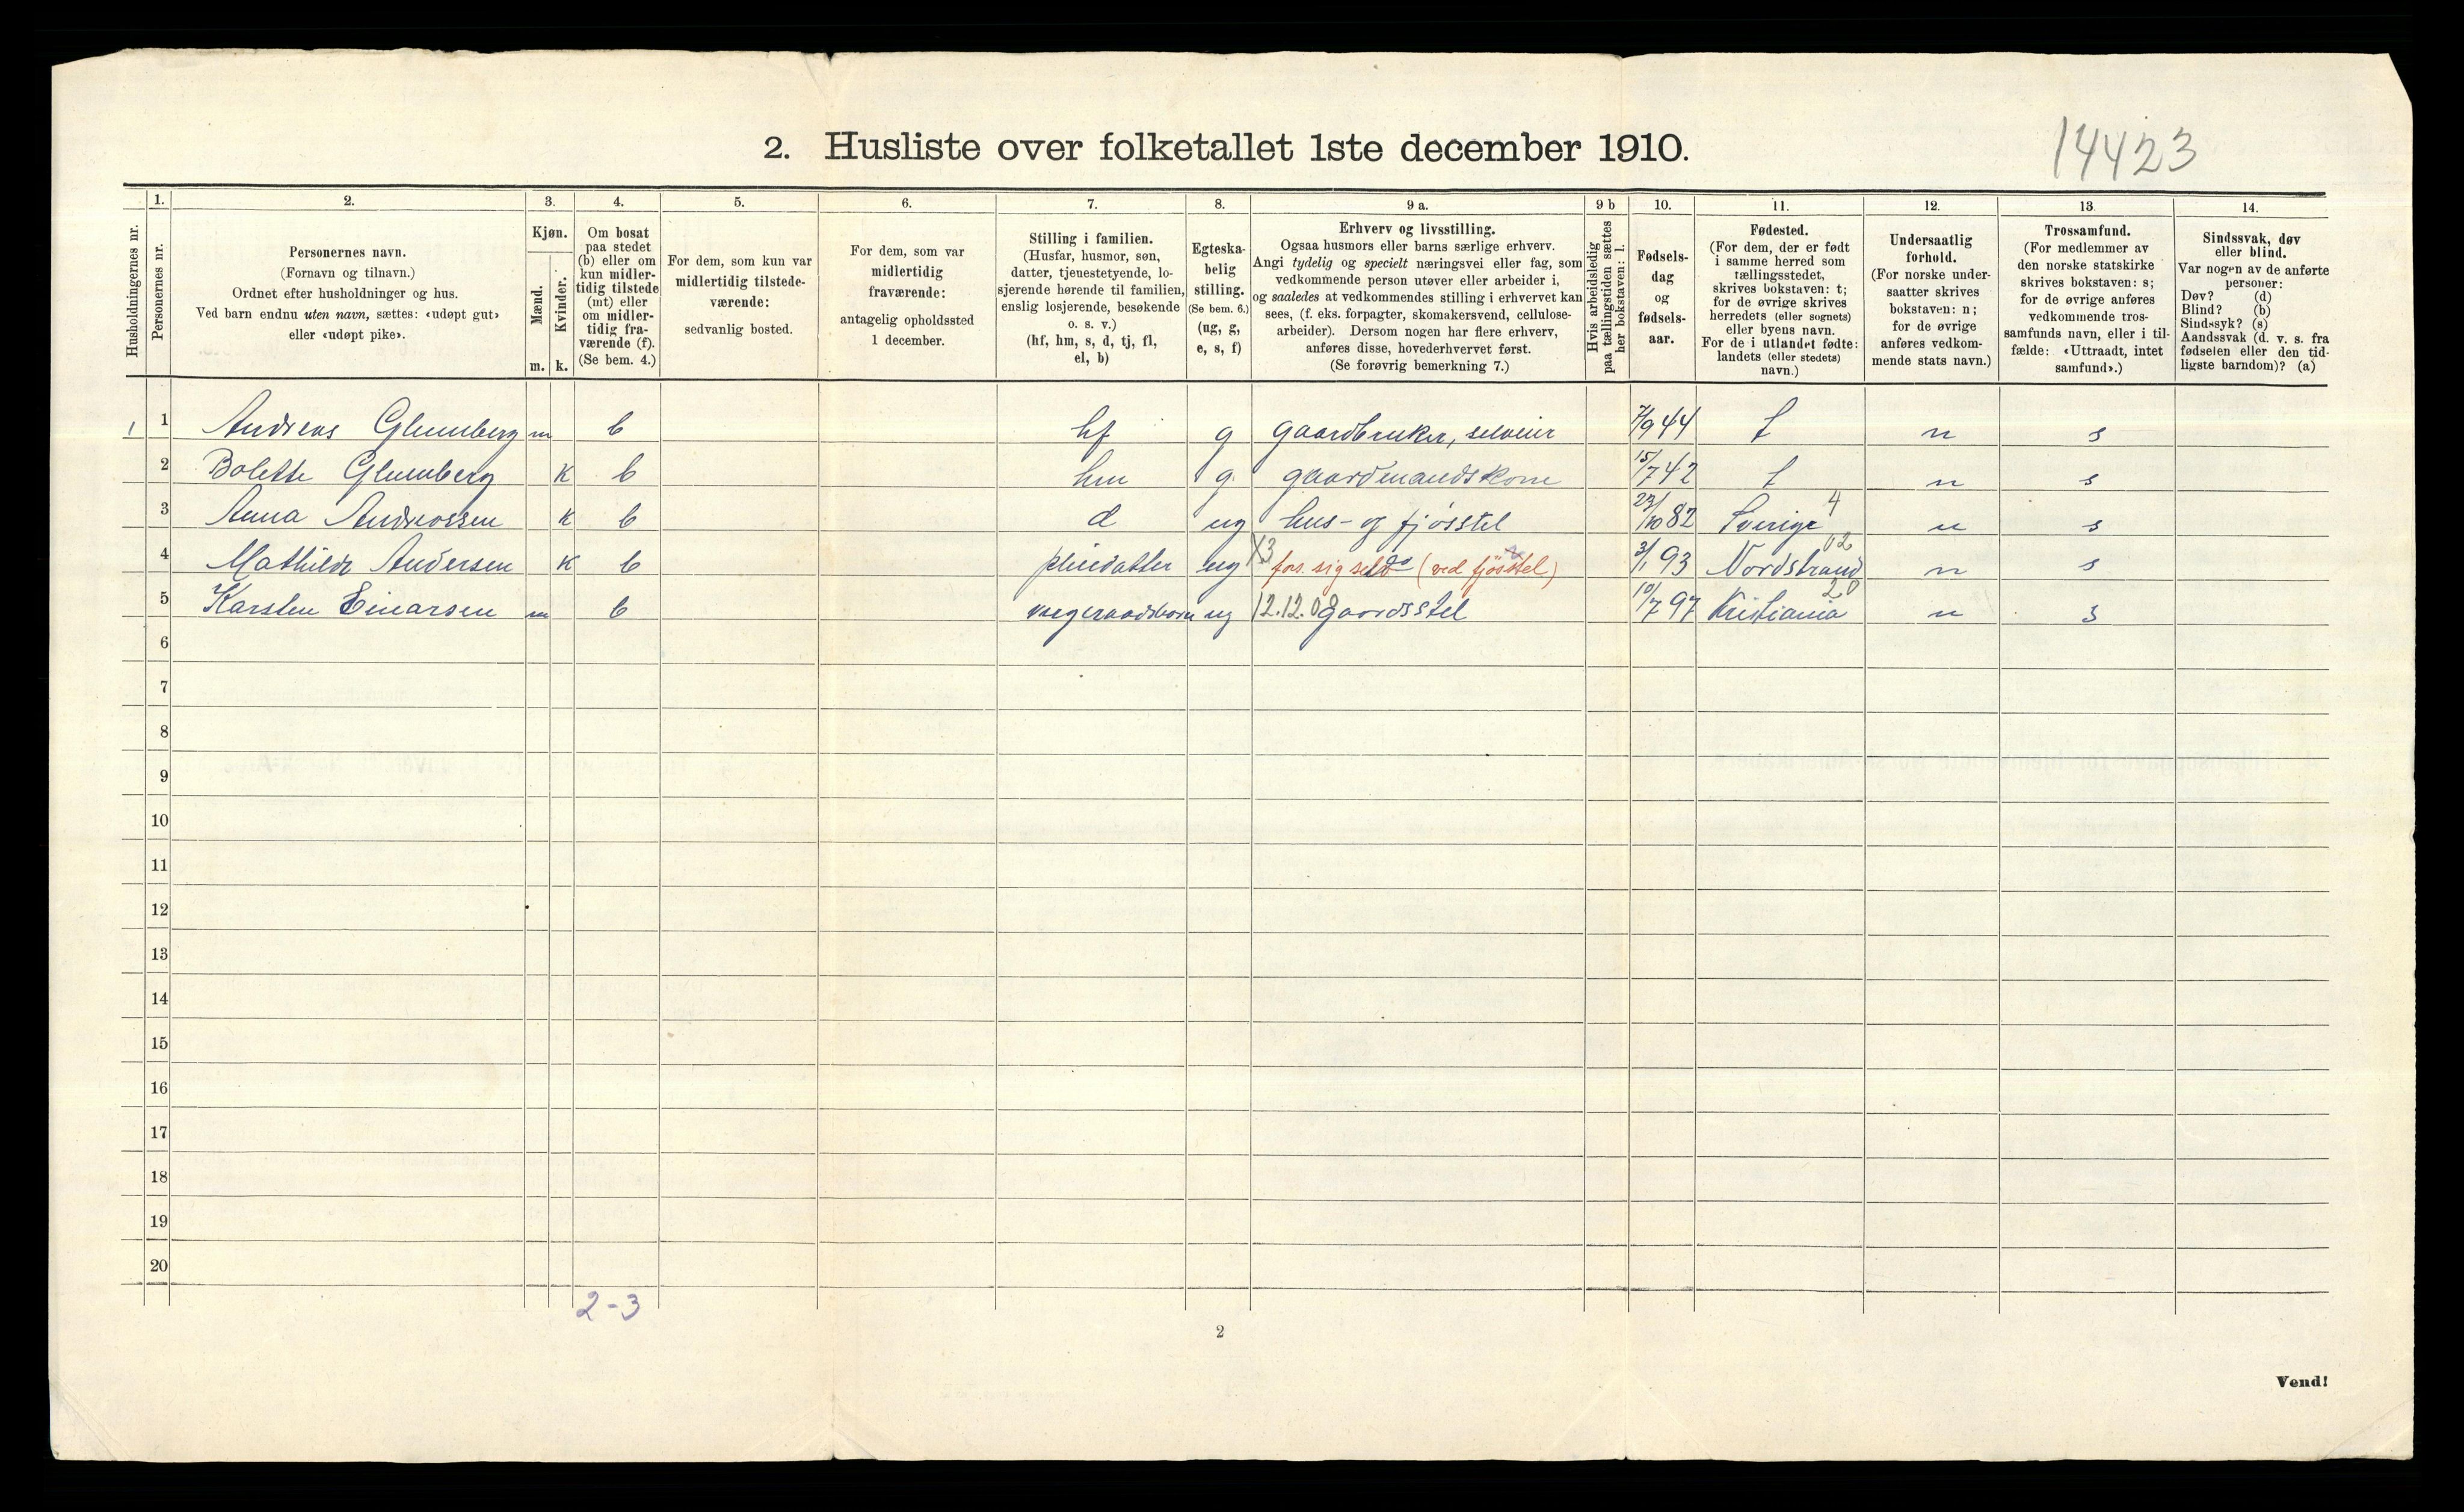 2. Husliste over folketallet 1ste december 1910.
14423
Husholdningernes nr.
1.
Personernes nr.
2.
Personernes navn.
(Fornavn og tilnavn.)
Ordnet efter husholdninger og hus.
Ved barn endnu uten navn, sættes: «udøpt gut»
eller «udøpt pike».
3.
Kjøn.
Mænd.
m.
Kvinder.
k.
4.
Om bosat
paa stedet
(b) eller om
kun midler-
tidig tilstede
(mt) eller
om midler-
tidig fra-
værende (f).
(Se bem. 4.)
5.
For dem, som kun var
midlertidig tilstede-
værende:
sedvanlig bosted.
6.
For dem, som var
midlertidig
fraværende:
antagelig opholdssted
1 december.
7.
Stilling i familien.
(Husfar, husmor, søn,
datter, tjenestetyende, lo-
sjerende hørende til familien,
enslig losjerende, besøkende
o. s. v.)
(hf, hm, s, d, tj, fl,
el, b)
8.
Egteska-
belig
stilling.
(Se bem. 6.)
(ug, g,
e, s, f)
9 a.
Erhverv og livsstilling.
Ogsaa husmors eller barns særlige erhverv.
Angi tydelig og specielt næringsvei eller fag, som
vedkommende person utøver eller arbeider i,
og saaledes at vedkommendes stilling i erhvervet kan
sees, (f. eks. forpagter, skomakersvend, cellulose-
arbeider). Dersom nogen har flere erhverv,
anføres disse, hovederhvervet først.
(Se forøvrig bemerkning 7.)
9 b
Hvis arbeidsledig
paa tællingstiden sættes
her bokstaven: l.
10.
Fødsels-
dag
og
fødsels-
aar.
11.
Fødested.
(For dem, der er født
i samme herred som
tællingsstedet,
skrives bokstaven: t;
for de øvrige skrives
herredets (eller sognets)
eller byens navn.
For de i utlandet fødte:
landets (eller stedets)
navn.)
12.
Undersaatlig
forhold.
(For norske under-
saatter skrives
bokstaven: n;
for de øvrige
anføres vedkom-
mende stats navn.)
13.
Trossamfund.
(For medlemmer av
den norske statskirke
skrives bokstaven: s;
for de øvrige anføres
vedkommende tros-
samfunds navn, eller i til-
fælde: «Uttraadt, intet
samfund».)
14.
Sindssvak, døv
eller blind.
Var nogen av de anførte
personer:
Døv? (d)
Blind? (b)
Sindssyk? (s)
Aandssvak (d. v. s. fra
fødselen eller den tid-
ligste barndom)? (a)
1 1 Andreas Glumberg m b hf g gaardbruker, selveier 7/9 44 t n s
2 Bolette Glumberg k b hm g gaardmandskone 15/7 42 t n s
3 Anna Andreassen k b d ug hus- og fjøsstel 23/10 82 Sverige 4 n s
4 Mathilde Andersen k b pleiedatter ug X3 fors. sig selv do (ved fjøsstel) 3/1 93 Nordstrand 02 n s
5 Karsten Einarsen m b vergeraadsbarn ug 12.12.08 gaardsstel 10/7 97 Kristiania 20 n s
6
7
8
9
10
11
12
13
14
15
16
17
18
19
20
2-3
2
Vend!